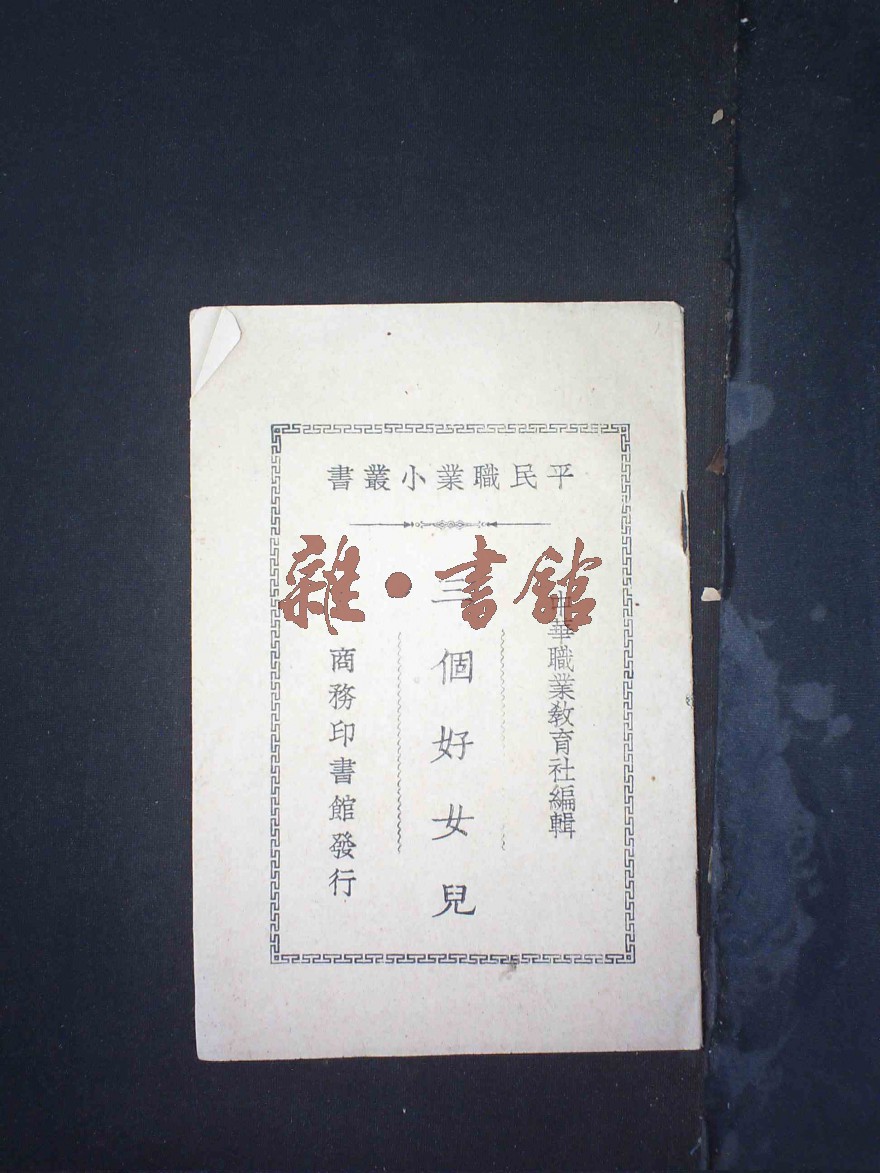 平民職業小叢書
中華職業教育社編輯
三個好女兒
商務印書館發行
雜·書館